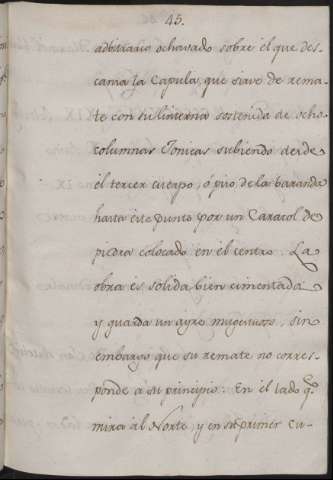 45.
adbitrario ochavado sobre el que des-
cansa la Capula, que save de rema-
te con su linterna sostenida de ocho
columnas Jonicas subiendo desde
el tercer cuerpo, ó piso de la baranda
hasta este punto por un Caracol de
piedra colocado en el centro. La
obra es solida bien cimentada
y guarda un ayre magestuoso, sin
embargo que su remate no corres-
ponde a su principio. En el lado q.
mira al Norte, y en su primer cu-